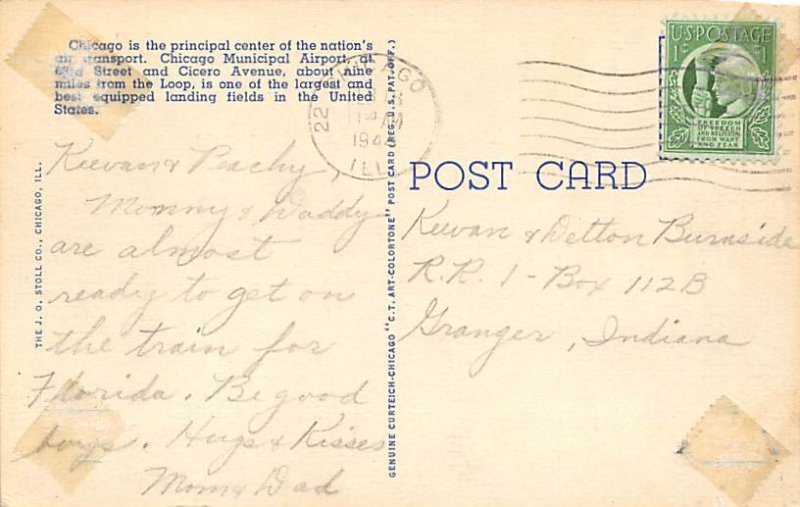 Chicago is the principal center of the nation's
air transport. Chicago Municipal Airport, at
63rd Street and Cicero Avenue, about nine
miles from the Loop, is one of the largest and
best equipped landing fields in the United
States.
THE J. O. STOLL CO., CHICAGO, ILL.
Keevan & Peachy,
Mommy & Daddy
are almost
ready to get on
the train for
Florida. Be good
boys. Hugs & Kisses
Mom & Dad
GENUINE CURTEICH-CHICAGO "C.T. ART-COLORTONE" POST CARD (REG. U.S. PAT. OFF.)
22
194
ILL
POST CARD
U.S. POSTAGE
1¢ 1¢
FREEDOM
OF SPEECH
AND RELIGION,
FROM WANT
AND FEAR
Keevan & Delton Burnside
R.R. 1 - Box 112B
Granger, Indiana